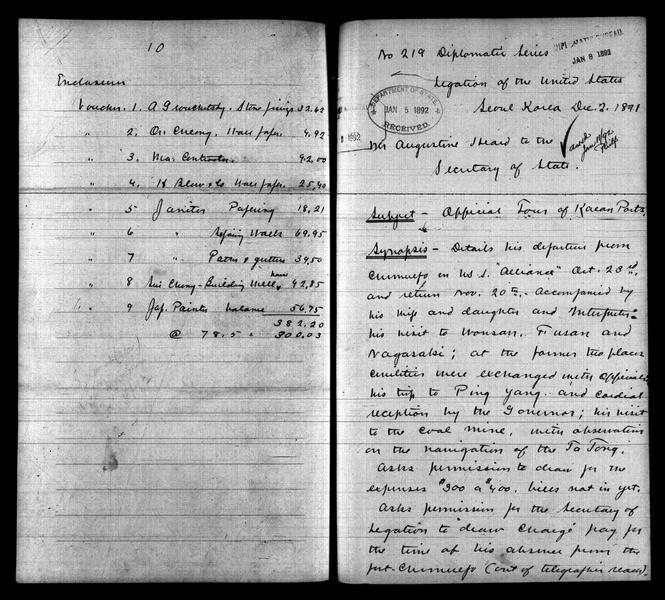 10
Enclosures
Voucher. 1. A Store fixings 32.62
" 2. On Cheong. Wall paper 4.92
" 3. 92.00
" 4. H Blow & Co Wall paper. 25.40
" 5 Janitor Papering 18.21
" 6 " Walls 69.95
" 7 " Paths & gutters 34.50
" 8 Cheong - Building Well house 42.85
" 9 Jap. Painter balance 56.75
382.20
@ 78.5 = 300.03
No 219 Diplomatic Series
DIPLOMATIC BUREAU.
JAN 8 1892
Legation of the United States
Seoul Korea Dec. 2. 1891
DEPARTMENT OF STATE.
JAN 5 1892
RECEIVED
1892
Mr Augustine Heard to the
Secretary of State.
Subject - Official Tour of Korean Ports.
Synopsis - Details his departure from
Chemulpo in U.S.S. "Alliance" Oct. 23rd,
and return Nov. 20th. Accompanied by
his wife and daughter and Interpreter
his visit to Wonsan, Fusan and
Nagasaki; at the former two places
civilities were exchanged with officials
his trip to Ping Yang. and cordial
reception by the Governor; his visit
to the coal mine, with observations
on the navigation of the Ta Tong.
Asks permission to draw for the
expenses $300 a $400. bills not in yet.
Asks permission for the Secretary of
Legation to draw Chargé pay for
the time of his absence from the
port - Chemulpo (out of telegraphic reach).